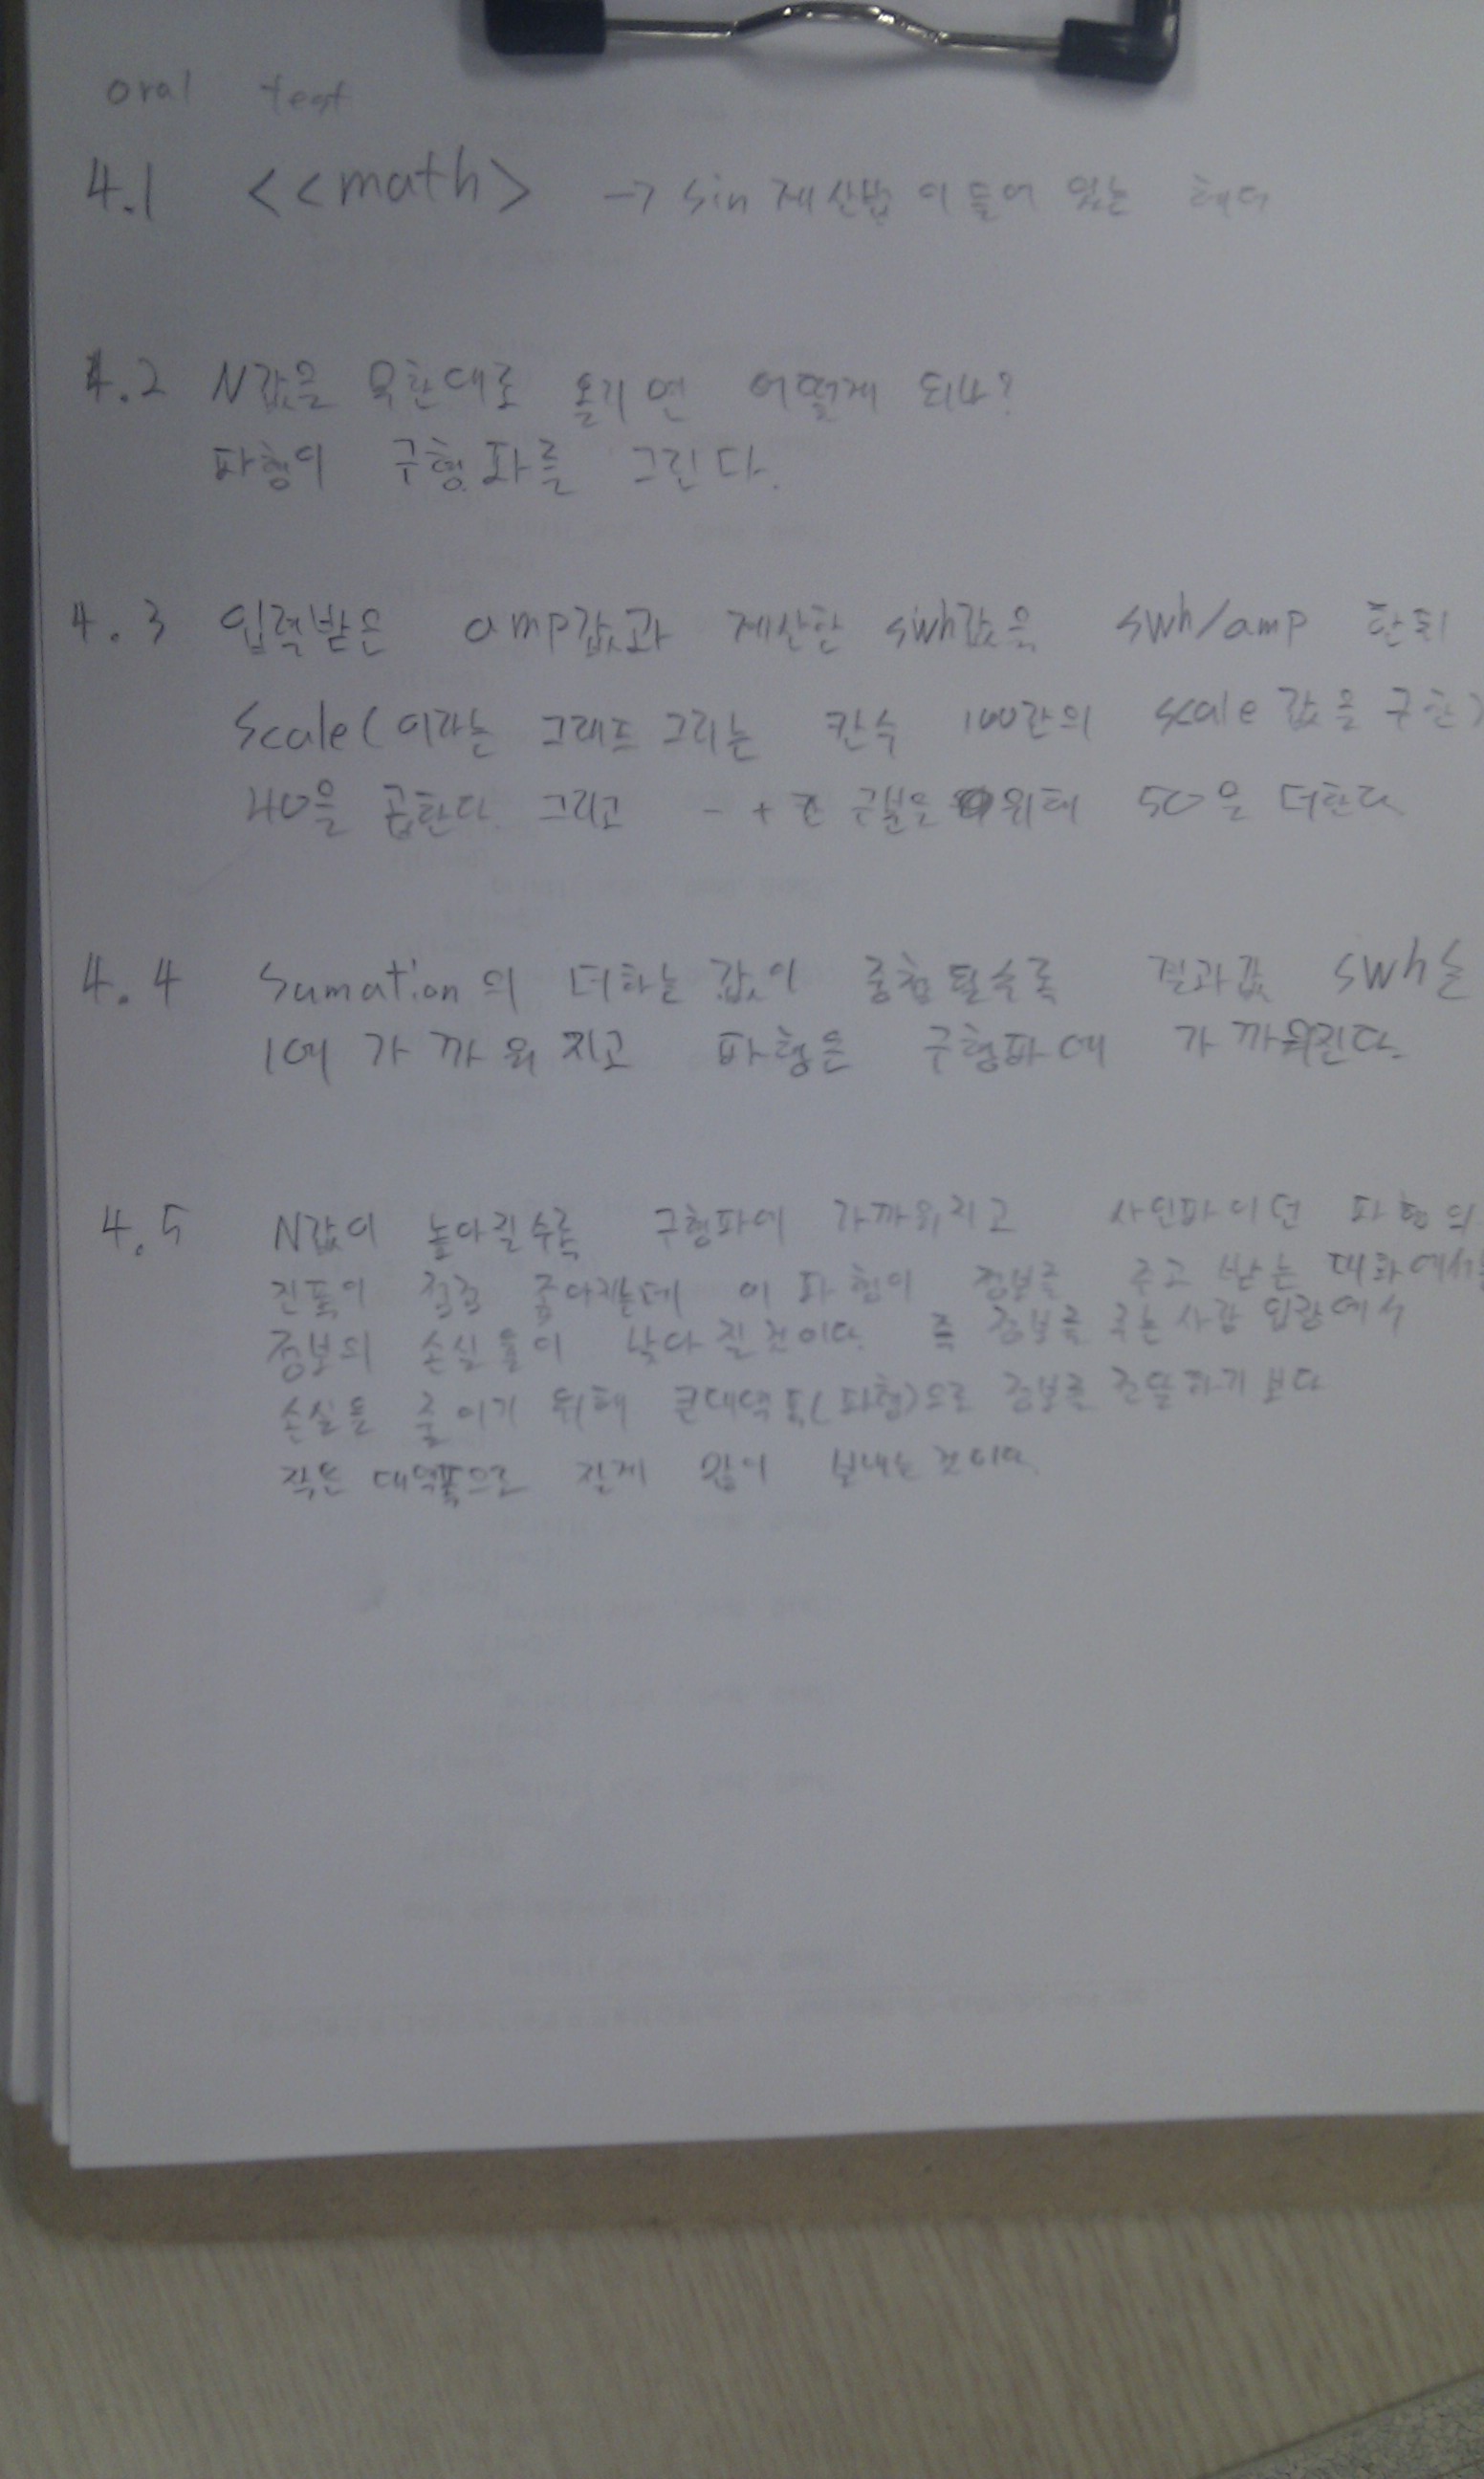 oral test
4.1 <<math> → sin 계산법이 들어 있는 헤더
4.2 N값을 무한대로 올리면 어떻게 되나?
파형이 구형파를 그린다.
4.3 입력받은 amp값과 계산한 swh값을 swh/amp 한뒤
Scale(이라는 그래프 그리는 칸수 100칸의 scale 값을 구한)
40을 곱한다. 그리고 - + 구분을 위해 50을 더한다
4.4 Sumation의 더하는 값이 중첩될수록 결과값 swh는
1에 가까워지고 파형은 구형파에 가까워진다.
4.5 N값이 높아질수록 구형파에 가까워지고 사인파이던 파형의
진폭이 점점 좁아지는데 이 파형이 정보를 주고 받는 대화에서
정보의 손실율이 낮아질것이다. 즉 정보를 주는 사람 입장에서
손실을 줄이기 위해 큰대역폭(파형)으로 정보를 전달하기 보다
작은 대역폭으로 길게 많이 보내는 것이다.